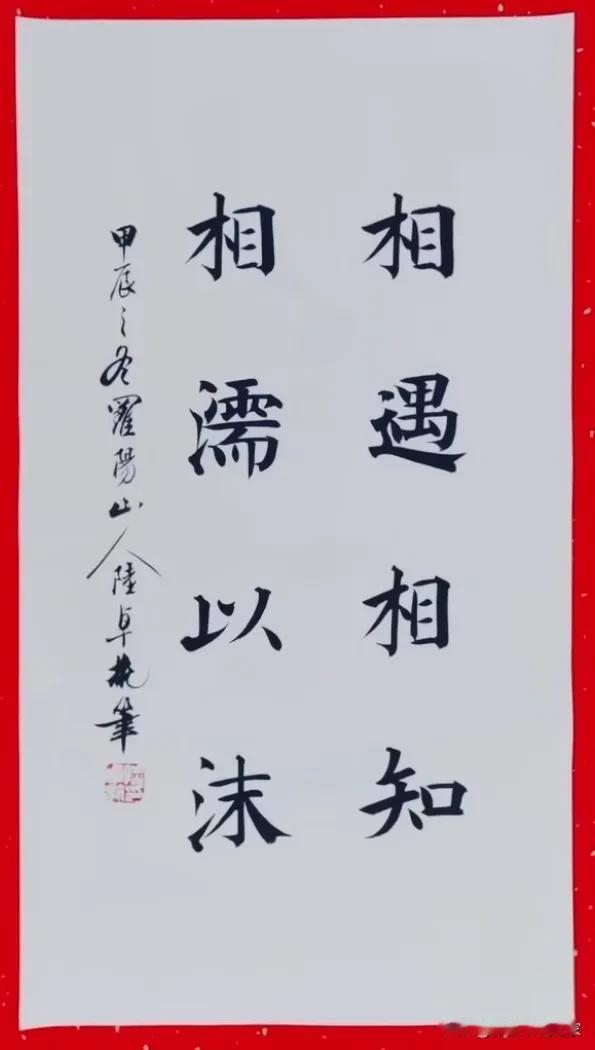 相遇相知
相濡以沫
甲辰之冬羅陽山人陸卓毓筆